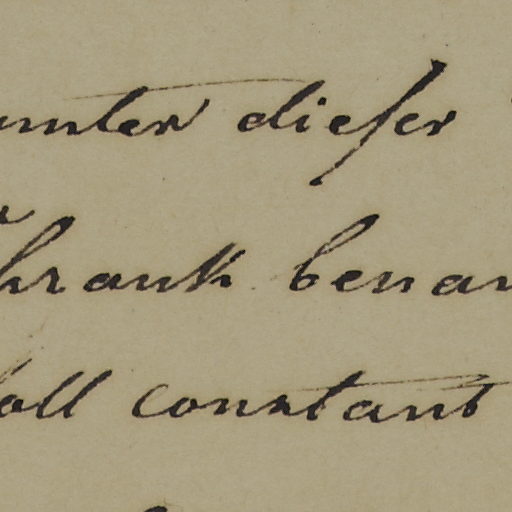 unter dieser
hrank benan
soll constant